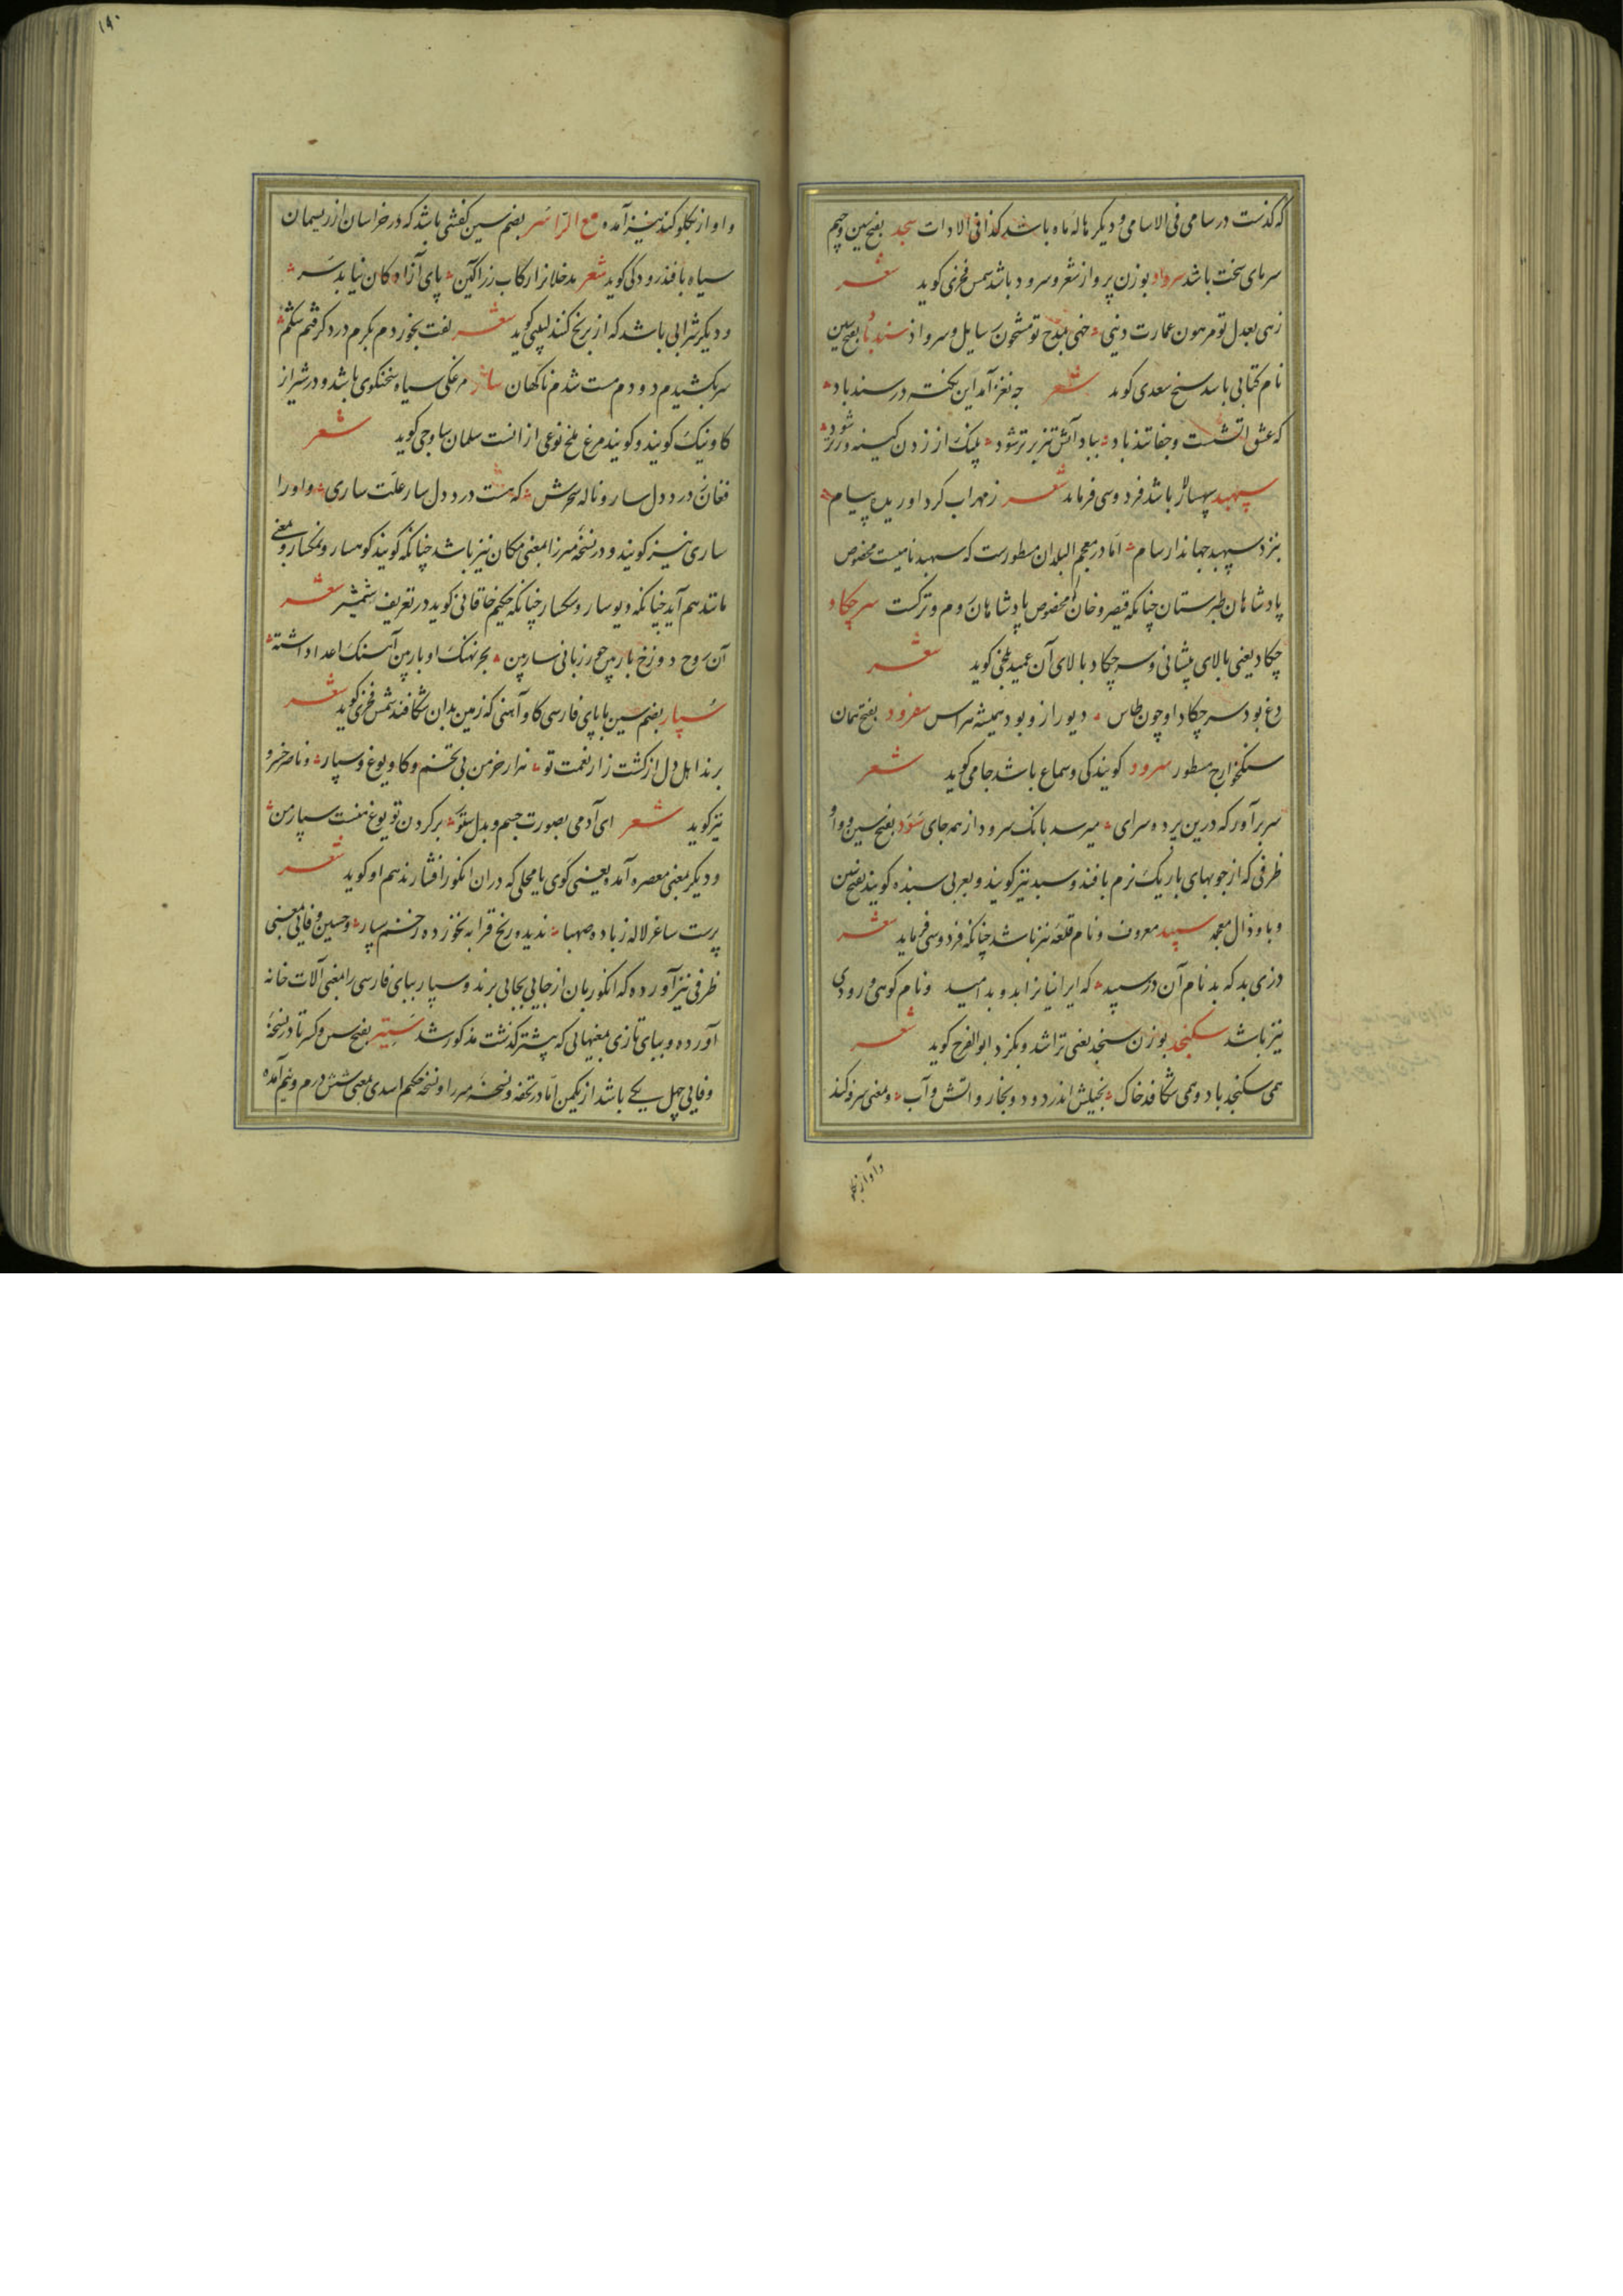 که گذشت در سامی فی الاسامی و دیگر هاله ماه باشد کذا فی الادات سجد بفتح سین و جیم
سرمای سخت باشد سرواد بوزن پرواز شعر و سرود باشد شمس فخری کوید شعر
زهی بعدل تو مرهون عمارت دنیی خهی بمدح تو مشحون رسایل و سرواد سندباد بفتح سین
نام کتابی باشد شیخ سعدی کوید شعر چه نغز آمد این نکته در سندباد
که عشق آتشست و جفا تندباد بباد آتش تیز برتر شود پلنک از زدن کینه ورتر شود
سپهبد سپهسالار باشد فردوسی فرماید شعر ز مهراب کرد آوریده پیام
بنزد سپهبد جهاندار سام اما در معجم البلدان مسطورست که سپهبد نامیست مخصوص
پادشاهان طبرستان چنانکه قیصر و خان مخصوص پادشاهان روم و ترکست سرچکاد
چکاد یعنی بالای پیشانی و سرچکاد بالای آن عمید بلخی کوید شعر
دغ بود سرچکاد او چون طاس دیو رازو بود همیشه هراس سفرود بفتح همان
سنکخوارج مسطور سرود کویندکی و سماع باشد جامی کوید شعر
سر برآور که درین پرده سرای میرسد بانک سرود از همه جای سود بفتح سین و واو
ظرفی که از چوبهای باریک نرم بافند و سبد نیز کویند و بعربی سبذه کویند بفتح سین
و با و ذال معجمه سپید معروف و نام قلعه نیز باشد چنانکه فردوسی فرماید شعر
دزی بد که بد نام آن دز سپید که ایرانیانرا بدو بد امید و نام کوهی و رودی
نیز باشد سکنجد بوزن سنجد یعنی تراشد و بکزد ابوالفرج کوید شعر
همی سکنجد باد و همی شکافد خاک بخیلش اندر دود و بخار و آتش و آب و بمعنی سرفه کند
و آواز بکلو
۱۹۰
و آواز بکلو کند نیز آمده مع الرا سر بضم سین کفشی باشد که در خراسان از ریسمان
سیاه بافند رودکی کوید شعر مدخلانرا رکاب زرآکین پای آزادکان نیابد سر
و دیگر شرابی باشد که از برنج کنند لبیبی کوید شعر لفت بخوردم بکرم درد کرفتم شکم
سر بکشیدم دو دم مست شدم ناکهان سار مرغکی سیاه سخنکوی باشد و در شیراز
کاوینک کویند و کویند مرغ ملخ نوعی از آنست سلمان ساوجی کوید شعر
فغان ز درد دل سار و ناله سحرش که هست در دل سار علت ساری و او را
ساری نیز کویند و در نسخه میرزا بمعنی مکان نیز باشد چنانکه کویند کوهسار و نمکسار و بمعنی
مانند هم آید چنانکه دیوسار و سکسار چنانکه حکیم خاقانی کوید در تعریف شمشیر شعر
آن روح دوزخ بار بین حور زبانی سار بین بحر نهنک اوبار بین آهنک اعدا داشته
سپار بضم سین با پای فارسی کاو آهنی که زمین بدان شکافند شمس فخری کوید شعر
برند اهل دل از کشت زار نعمت تو هزار خرمن بی تخم و کاو و یوغ و سپار و ناصر خسرو
نیز کوید شعر ای آدمی بصورت جسم و بدل ستور بر کردن تو یوغ منست سپار من
و دیگر بمعنی معصره آمده یعنی کوی یا محلی که در آن انکور افشارند هم او کوید شعر
پرست ساغر لاله ز باده صهبا ندیده رنج قرابه نخورده زخم سپار و حسین وفایی بمعنی
ظرفی نیز آورده که انکور بآن از جایی بجایی برند و سپار ببای فارسی را بمعنی آلات خانه
آورده و ببای تازی بمعنیهایی که پیشتر کذشت مذکور شد ستیر بفتح سین و کسر تا در نسخه
وفایی چهل یکی باشد از یکمن اما در تحفه و نسخه میرزا و نسخه حکیم اسدی بمعنی شش درم و نیم آمده